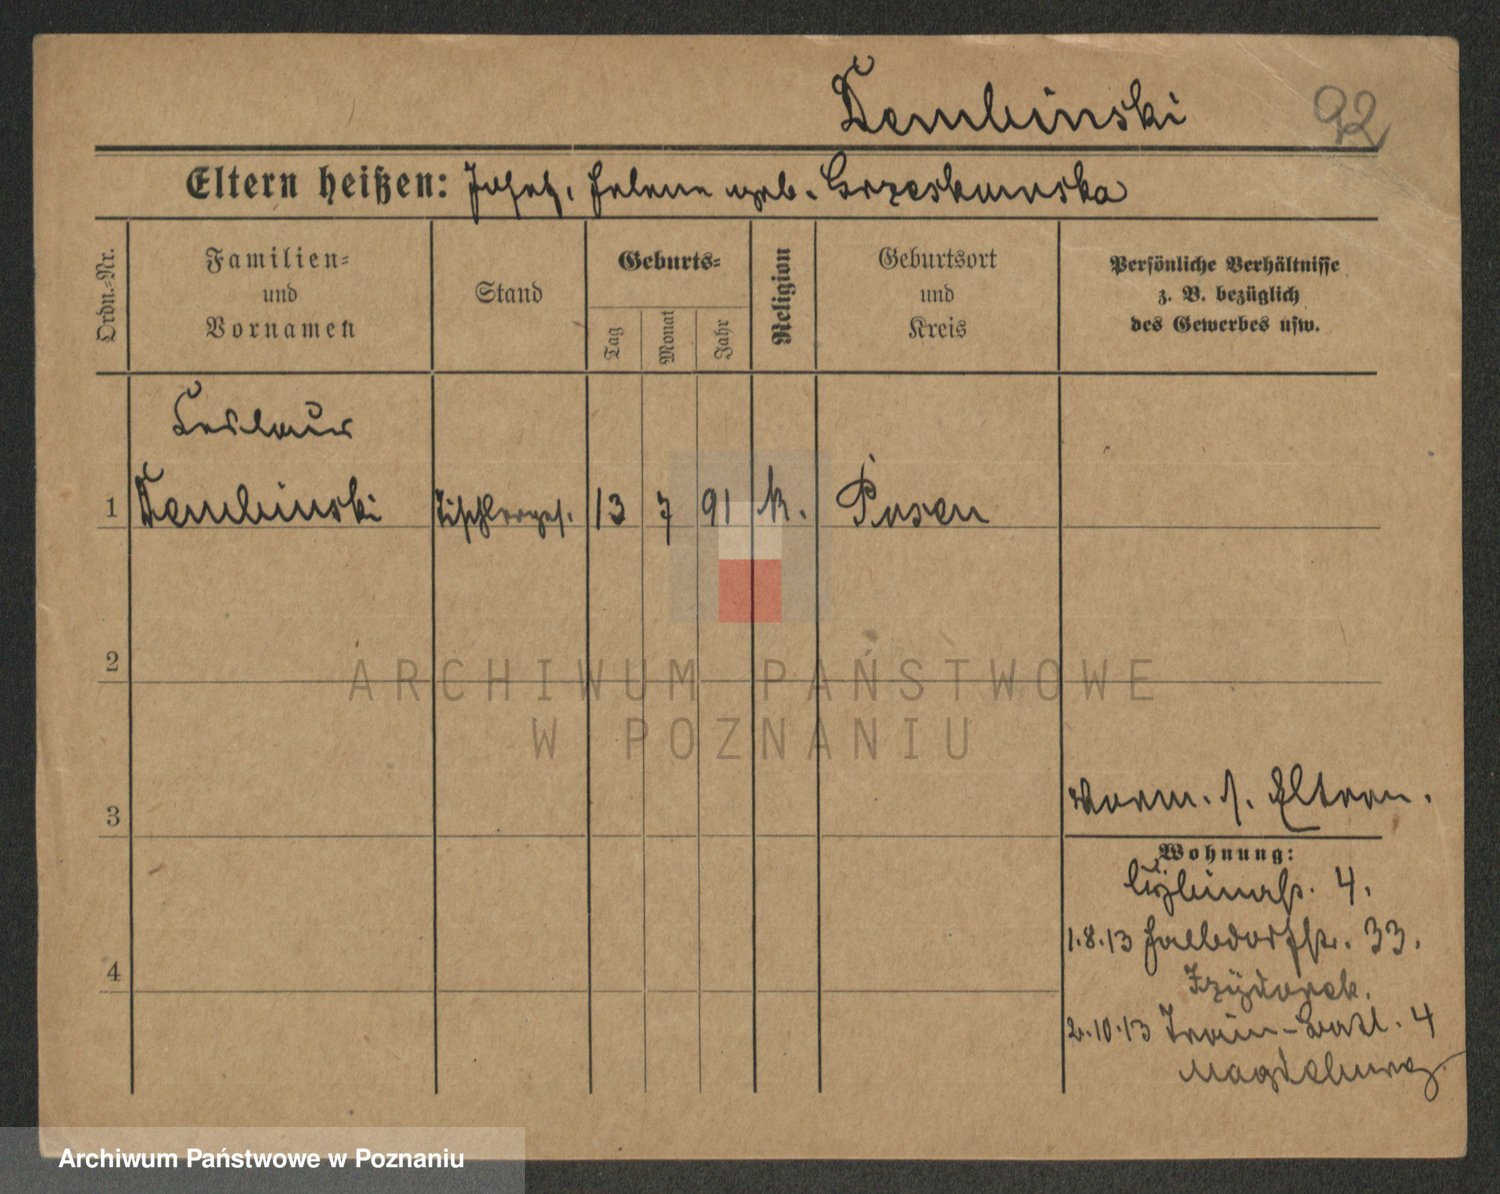 Dembinski 92
Eltern heißen: Josef, Helene geb. Grzeskowska
Ordn.-Nr.
Familien-
und
Vornamen
Stand
Geburts-
Tag
Monat
Jahr
Religion
Geburtsort
und
Kreis
Persönliche Verhältnisse
z. B. bezüglich
des Gewerbes usw.
Ceslaus
1 Dembinski Tischlerges. 13 7 91 k. Posen
2
ARCHIWUM PAŃSTWOWE
W POZNANIU
3
s. Eltern.
Wohnung:
Cybinastr. 4.
1.8.13 Halbdorfstr. 33.
Izydorek.
2.10.13 Train-Batl. 4
Magdeburg
4
Archiwum Państwowe w Poznaniu